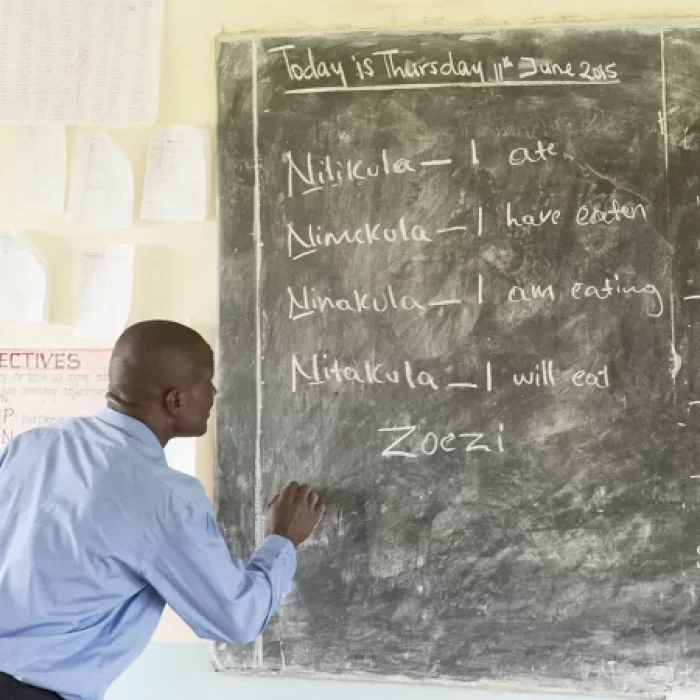 Today is Thursday 11th June 2015
Nilikula – I ate
Nimekula – I have eaten
Ninakula – I am eating
Nitakula – I will eat
Zoezi
ECTIVES